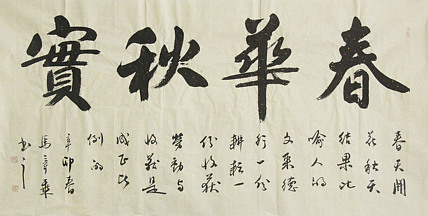 春華秋實
春天開
花秋天
結果比
喻人的
文德
行一份
耕耘一
份收获
勞動与
收获是
成正比
例的
辛卯春
馬華
書之